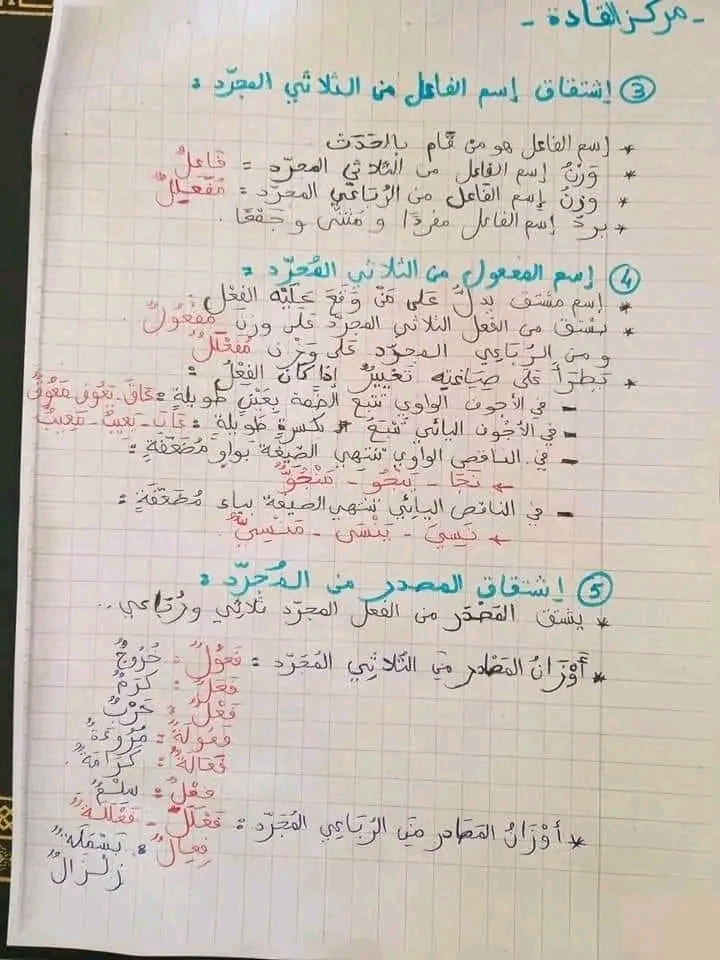 - مركز القادة -
③ إشتقاق إسم الفاعل من الثلاثي المجرّد :
* إسم الفاعل هو من قام بالحَدَث
* وَزنُ إسم الفاعل من الثلاثي المجرّد = فَاعِلٌ
* وزنُ إسم الفاعل من الرُباعي المجرّد = مُفَعْلِلٌ
* يردُ إسم الفاعل مفردًا و مَثنَّى و جَمْعًا.
④ إسم المفعول من الثلاثي المُجرّد :
* إسم مشتق يدلُّ على مَنْ وَقَعَ عَلَيْه الفِعْل.
* يشتق من الفعل الثلاثي المجرّد عَلى وزن مَفْعُولٌ
و من الرُبَاعِي المجرّد عَلى وَزْن مُفَعْلَلٌ
* تَطرَأ عَلى صيَاغتِه تَغييرٌ إذا كانَ الفِعْلُ :
- في الأجوف الواوي تتبع الضَّمة بِعَيْنٍ طويلة : عَافَ - يَعُوف - مَعُوفٌ
- في الأجوف اليائي تتبعُ كسرةٍ طويلة : عَابَ - يَعِيبُ - مَعِيبٌ
- في الناقص الواوي تنتهي الصّيغَة بواوٍ مُضَعّفَةٍ :
← نَجَا - يَنْجُو - مَنْجُوٌّ
- في الناقص اليائِي تنتهي الصيغة بياء مُضَعّفَةٍ :
← نَسِيَ - يَنْسَى - مَنْسِيٌّ
⑤ إشتقاق المصدر من المُجرّد :
* يشتق المَصْدَر من الفعل المجرّد ثلاثِي ورُبَاعي..
* أَوْزَانُ المَصَادر مِن الثّلاثِي المُجَرّد : فُعُولٌ : خُرُوجٌ
فَعَلٌ : كَرَمٌ
فَعْلٌ : حَرْبٌ
فُعُولَةٌ : مُرُوءَةٌ
فَعَالَةٌ : كَرَامَةٌ.
فِعْلٌ : سِلْمٌ
* أوْزَانُ المَصَادر مِن الرُبَاعِي المُجَرّد : فَعْلَلَ - فَعْلَلَةٌ
فِعلالٌ : بَسْمَلَةٌ
زِلْزَالٌ